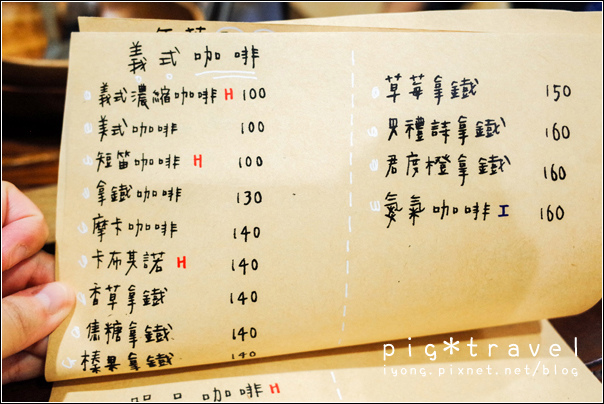 義式咖啡
義式濃縮咖啡 H 100
美式咖啡 100
短笛咖啡 H 100
拿鐵咖啡 130
摩卡咖啡 140
卡布其諾 H 140
香草拿鐵 140
焦糖拿鐵 140
榛果拿鐵 140
草莓拿鐵 150
貝禮詩拿鐵 160
君度橙拿鐵 160
氮氣咖啡 I 160
單品咖啡 H
pig*travel
iyong.pixnet.net/blog